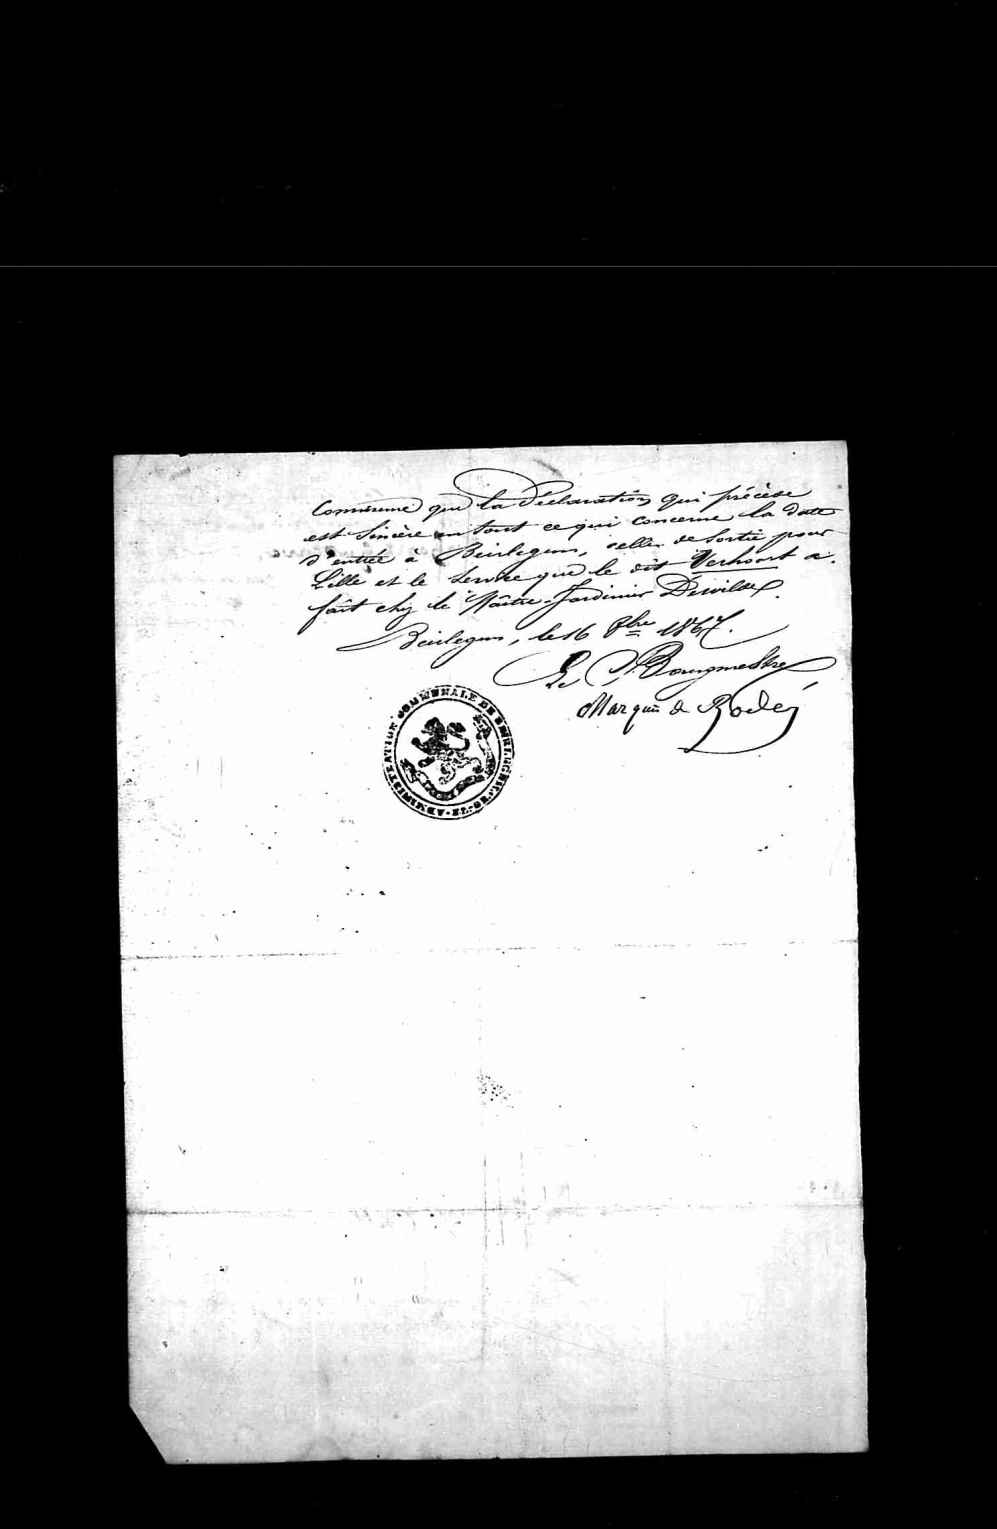 Commune que la Déclaration qui précède
est sincère en tout ce qui concerne la date
d'entrée à Beirlegem, celle de sortie pour
Lille et le service que le dit Verhoort a
fait chez le Maître-Jardinier Dewilde.
Beirlegem, le 16 8bre 1867.
Le Bourgmestre
Marquis de Rodes
ADMINISTRATION COMMUNALE DE